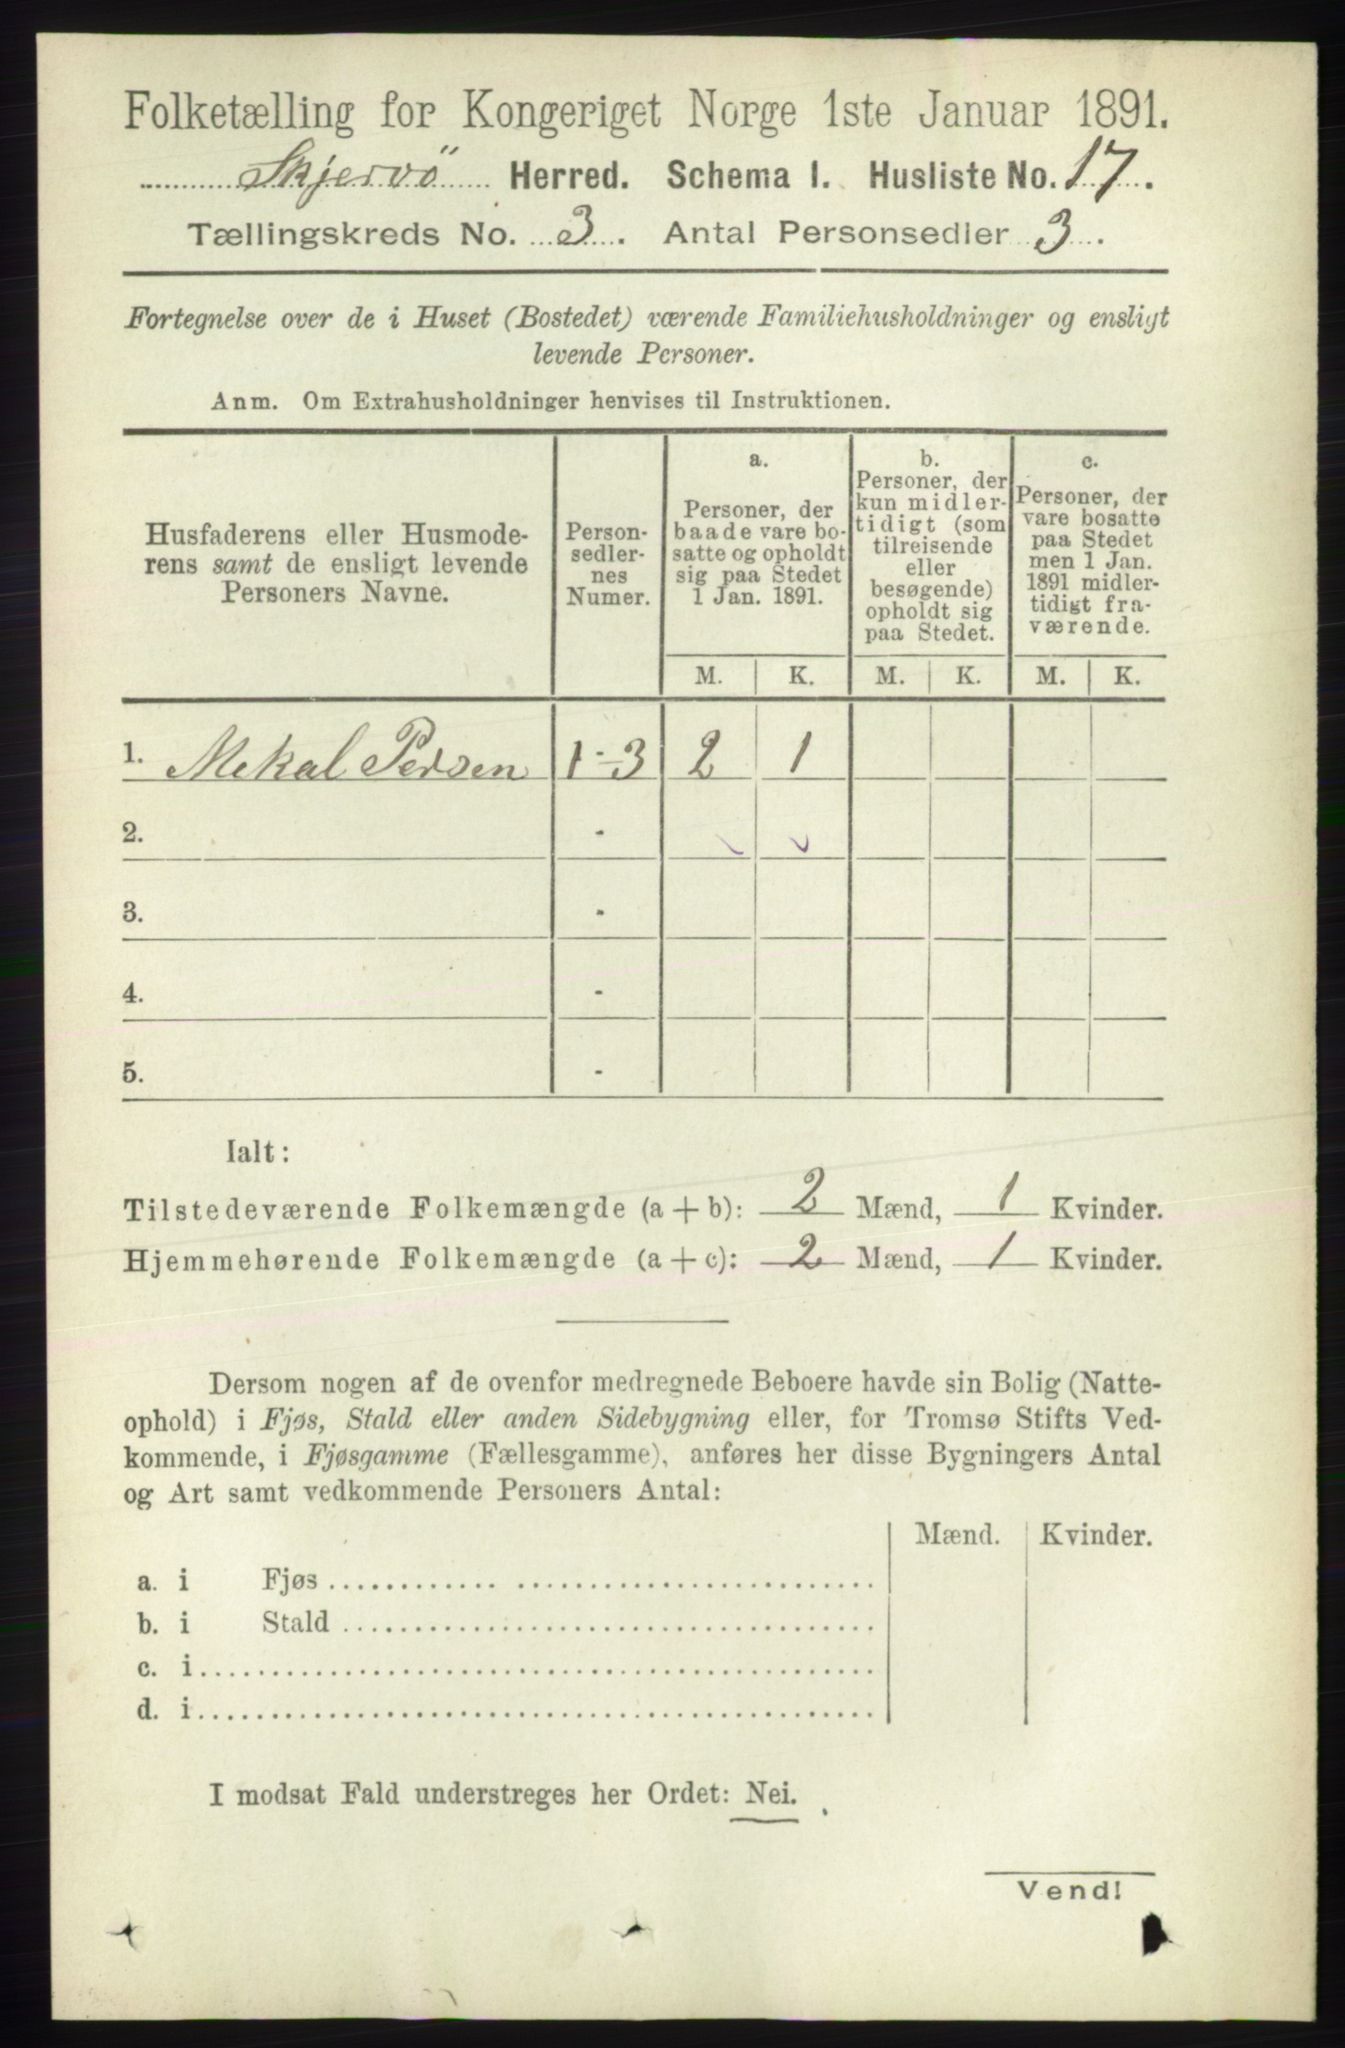 Folketælling for Kongeriget Norge 1ste Januar 1891.
Skjervö Herred. Schema I. Husliste No. 17.
Tællingskreds No. 3. Antal Personsedler 3.
Fortegnelse over de i Huset (Bostedet) værende Familiehusholdninger og ensligt
levende Personer.
Anm. Om Extrahusholdninger henvises til Instruktionen.
Husfaderens eller Husmode-
rens samt de ensligt levende
Personers Navne.
Person-
sedler-
nes
Numer.
a.
Personer, der
baade vare bo-
satte og opholdt
sig paa Stedet
1 Jan. 1891.
b.
Personer, der
kun midler-
tidigt (som
tilreisende
eller
besøgende)
opholdt sig
paa Stedet.
c.
Personer, der
vare bosatte
paa Stedet
men 1 Jan.
1891 midler-
tidigt fra-
værende.
M. K. M. K. M. K.
1. Mekal Persen 1-3 2 1
2. -
3. -
4. -
5. -
Ialt:
Tilstedeværende Folkemængde (a + b): 2 Mænd, 1 Kvinder.
Hjemmehørende Folkemængde (a + c): 2 Mænd, 1 Kvinder.
Dersom nogen af de ovenfor medregnede Beboere havde sin Bolig (Natte-
ophold) i Fjøs, Stald eller anden Sidebygning eller, for Tromsø Stifts Ved-
kommende, i Fjøsgamme (Fællesgamme), anføres her disse Bygningers Antal
og Art samt vedkommende Personers Antal:
Mænd. Kvinder.
a. i Fjøs
b. i Stald
c. i
d. i
I modsat Fald understreges her Ordet: Nei.
Vend!